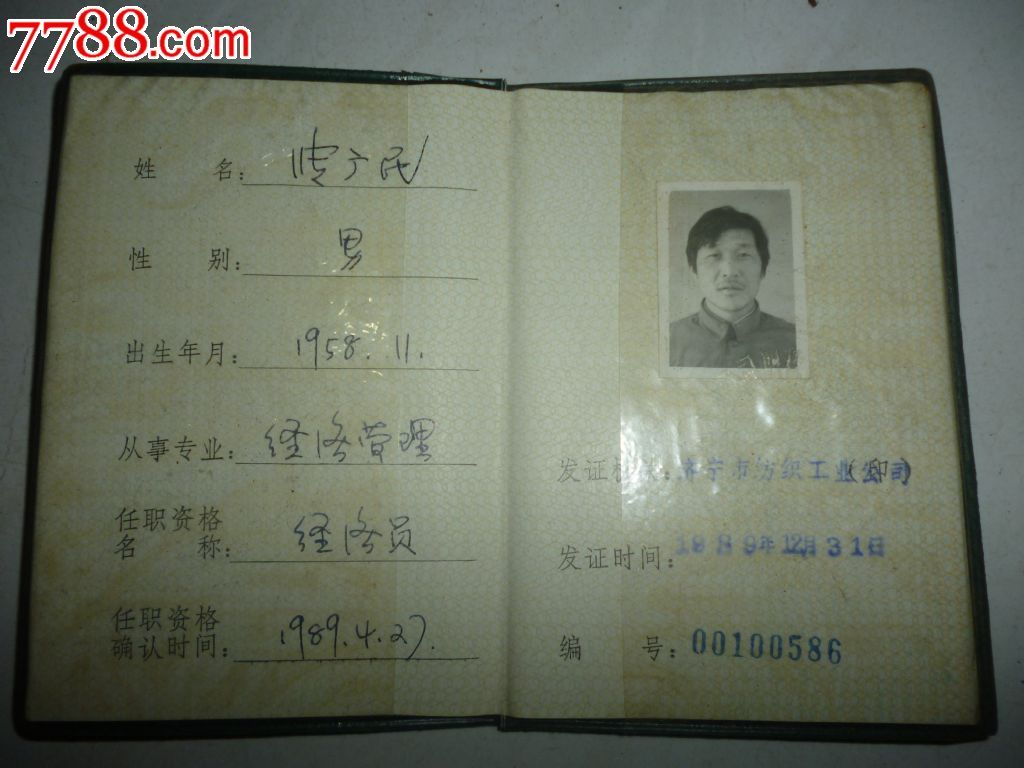 7788.com
姓 名: 广民
性 别: 男
出生年月: 1958.11.
从事专业: 经济管理
任职资格
名 称: 经济员
任职资格
确认时间: 1989.4.27.
发证机关: 济宁市纺织工业公司 (印)
发证时间: 1989年12月31日
编 号: 00100586